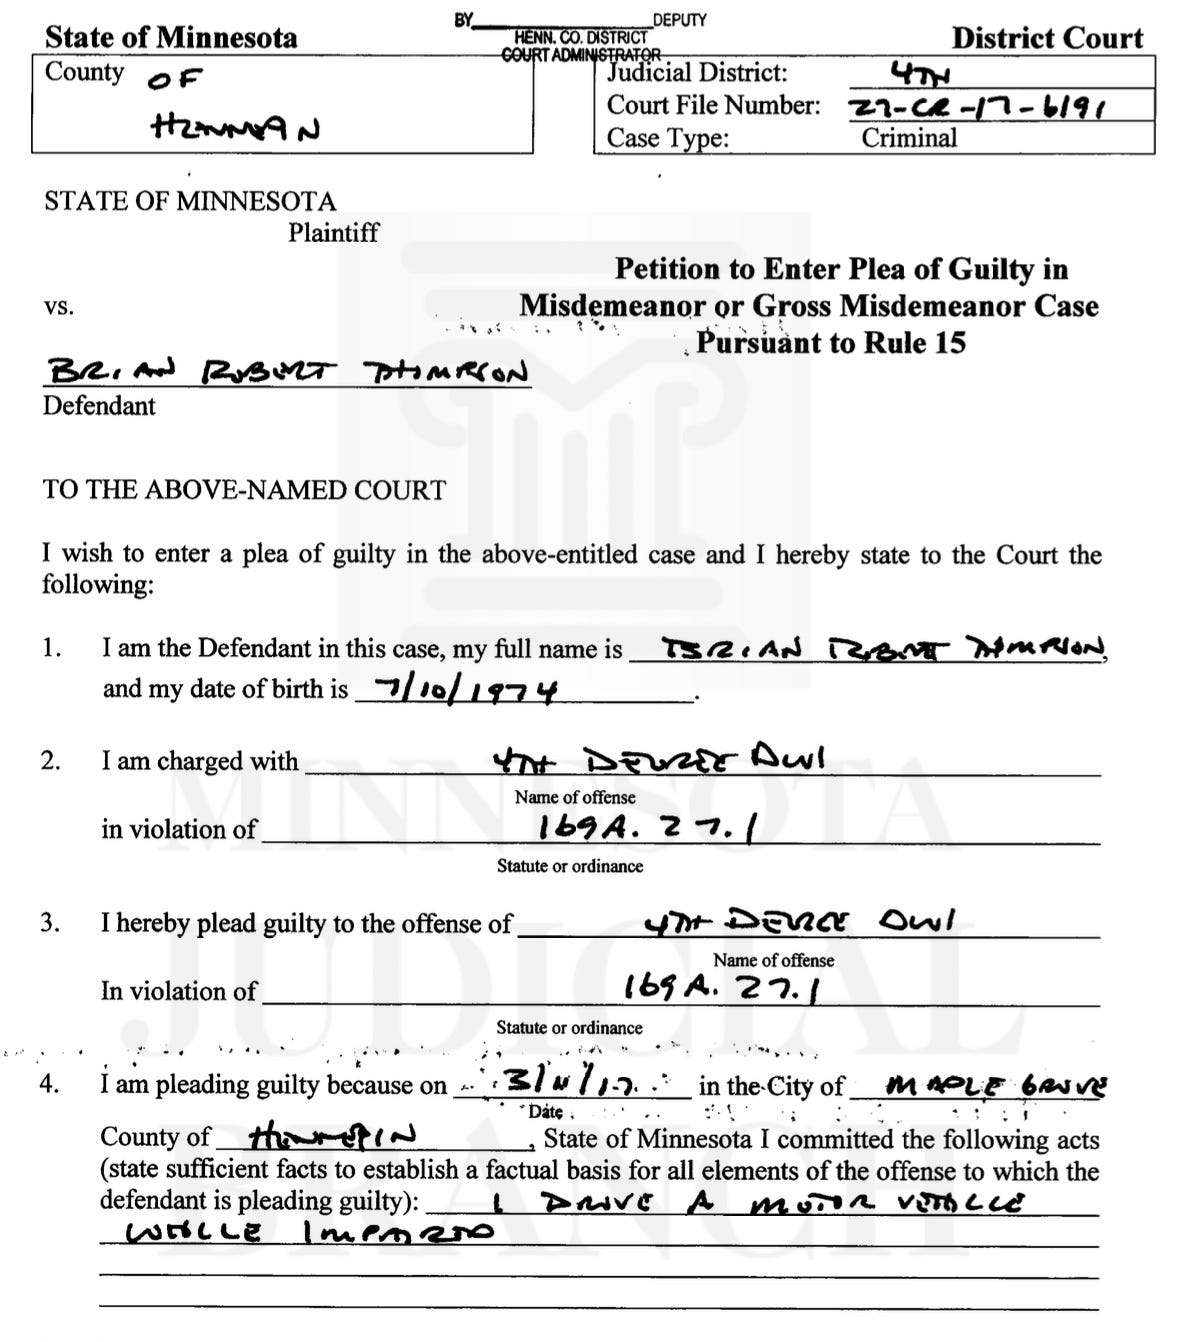 BY____________________DEPUTY
HENN. CO. DISTRICT
COURT ADMINISTRATOR
State of Minnesota
District Court
County OF
HENNEPIN
Judicial District: 4TH
Court File Number: 27-CR-17-6191
Case Type: Criminal
STATE OF MINNESOTA
Plaintiff
Petition to Enter Plea of Guilty in
Misdemeanor or Gross Misdemeanor Case
Pursuant to Rule 15
vs.
BRIAN ROBERT THOMPSON
Defendant
TO THE ABOVE-NAMED COURT
I wish to enter a plea of guilty in the above-entitled case and I hereby state to the Court the
following:
1. I am the Defendant in this case, my full name is BRIAN ROBERT THOMPSON,
and my date of birth is 7/10/1974.
2. I am charged with 4TH DEGREE DWI
Name of offense
in violation of 169A. 27.1
Statute or ordinance
3. I hereby plead guilty to the offense of 4TH DEGREE DWI
Name of offense
In violation of 169A. 27.1
Statute or ordinance
4. I am pleading guilty because on in the City of MAPLE GROVE
Date
County of HENNEPIN, State of Minnesota I committed the following acts
(state sufficient facts to establish a factual basis for all elements of the offense to which the
defendant is pleading guilty): I DROVE A MOTOR VEHICLE
WHILE IMPAIRED
MINNESOTA
JUDICIAL
BRANCH